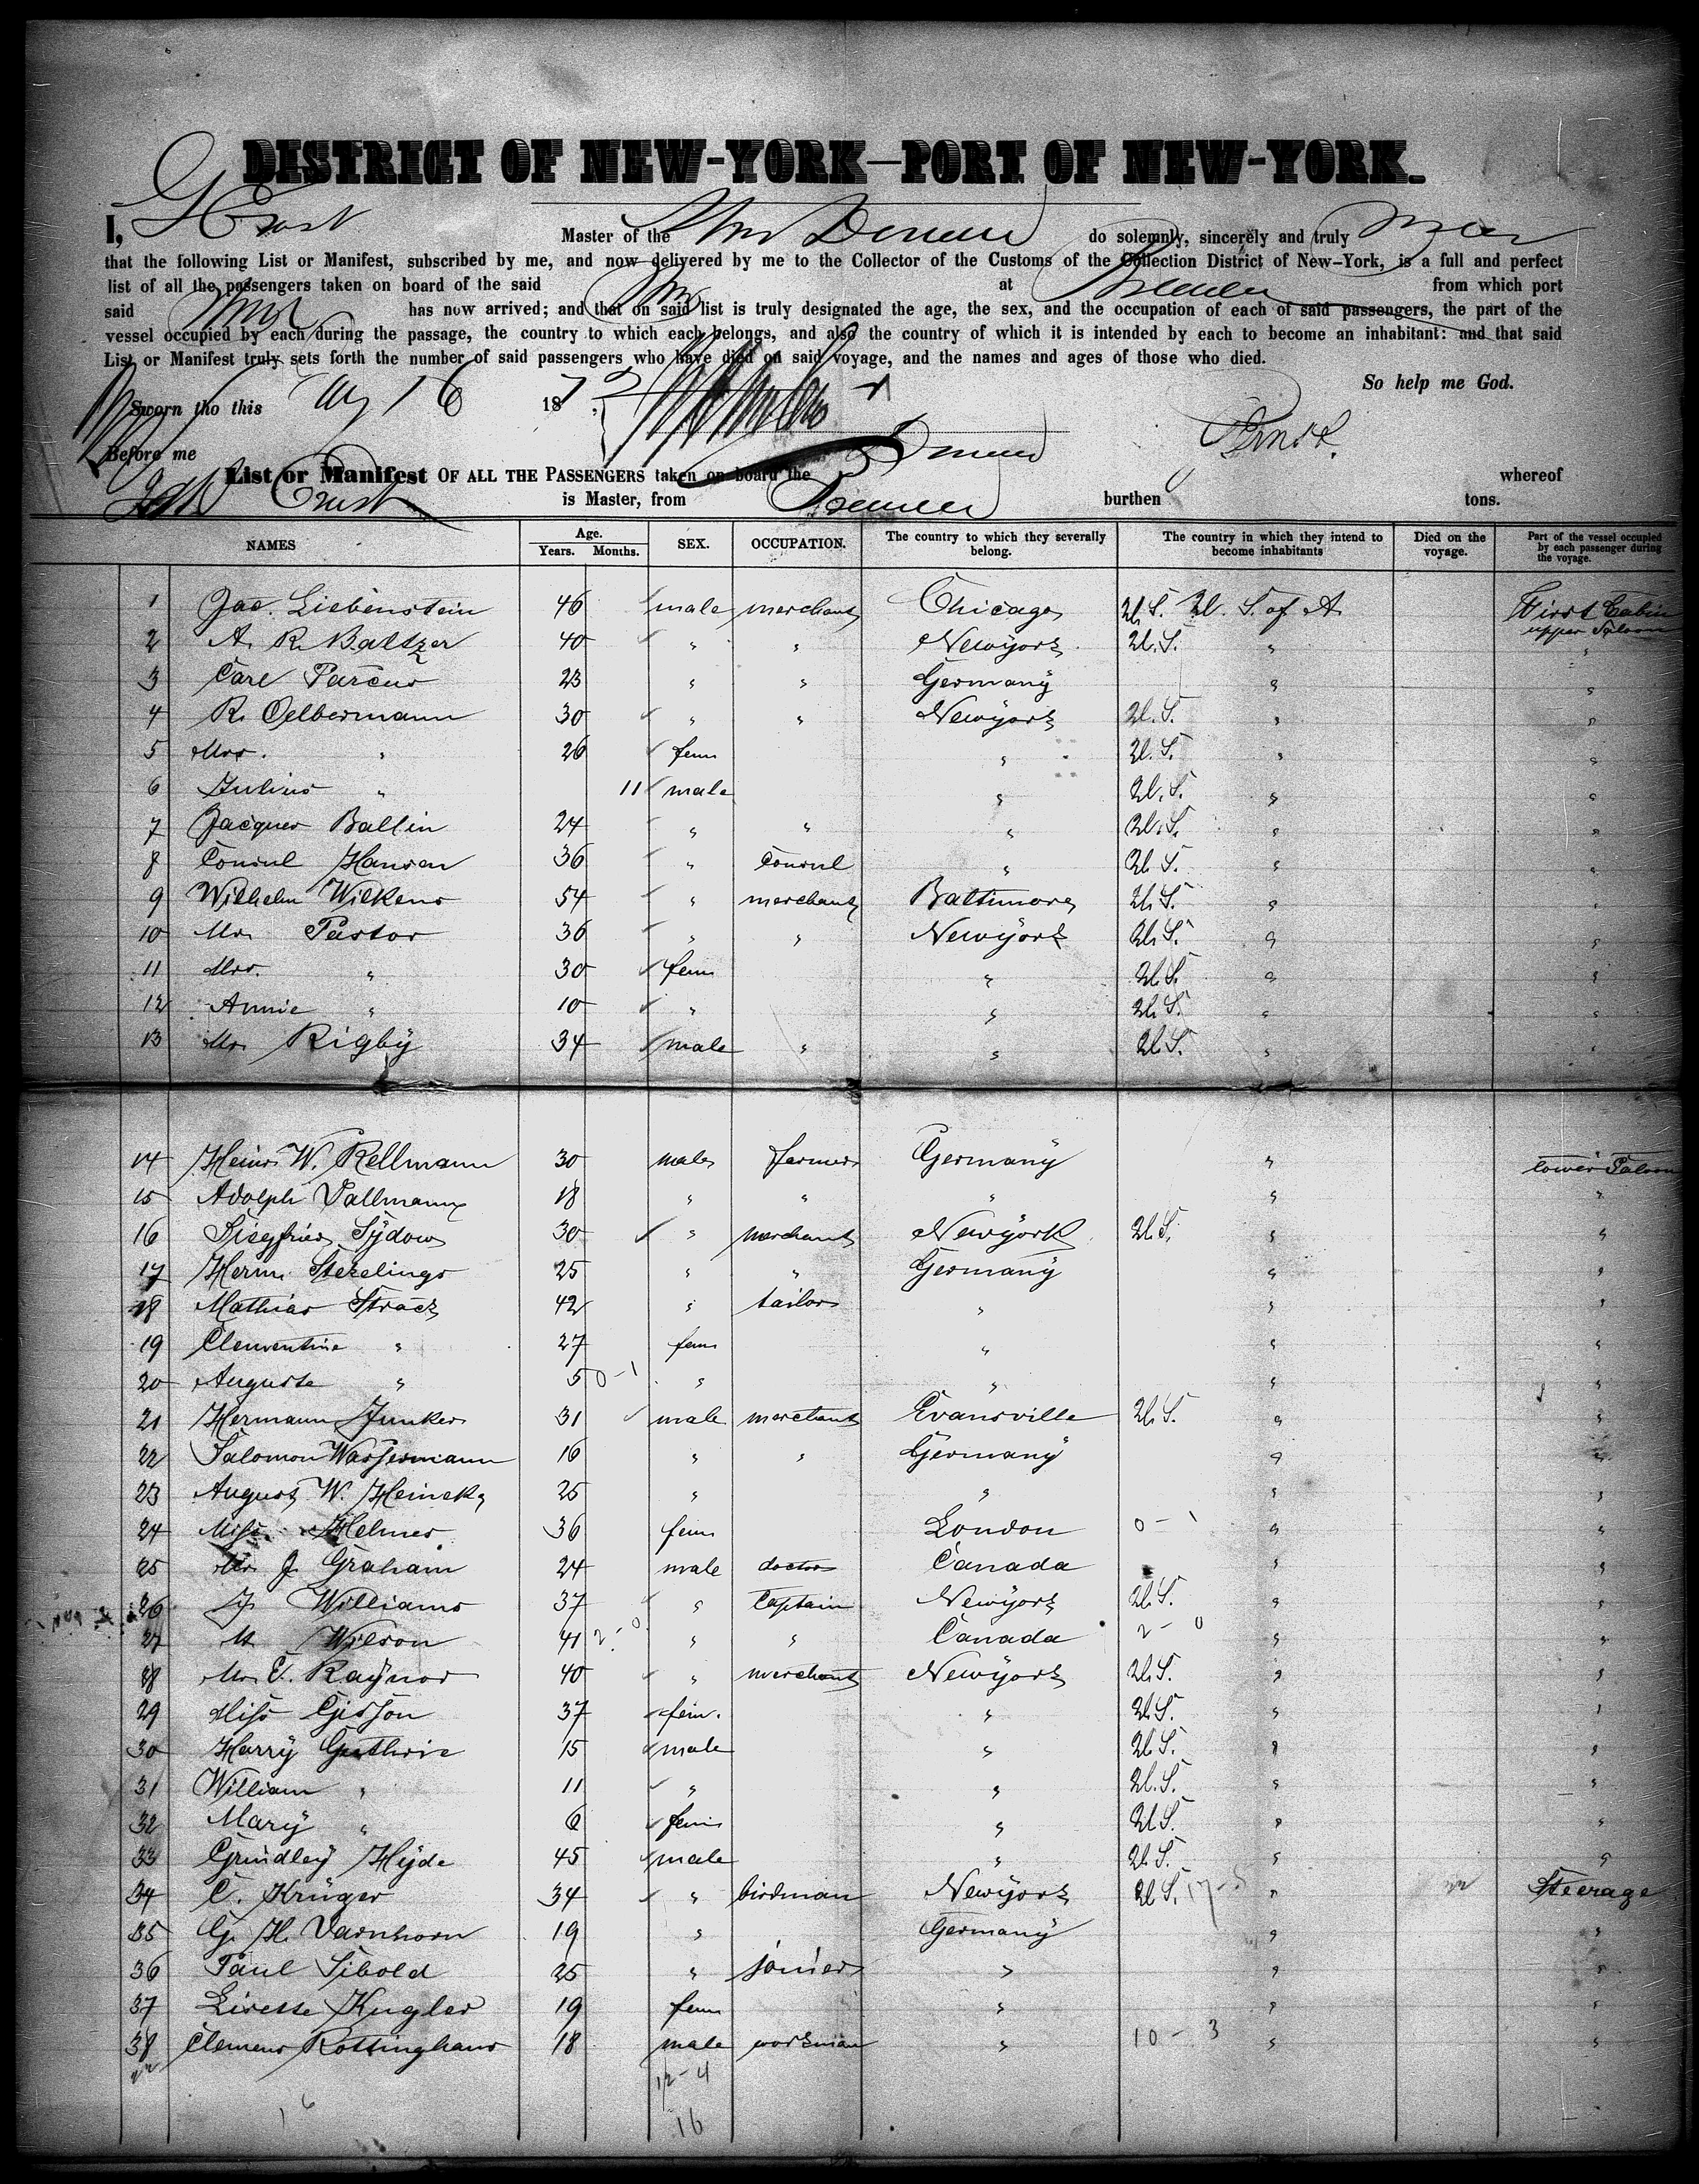 DISTRICT OF NEW-YORK—PORT OF NEW-YORK.
I, Master of the do solemnly, sincerely and truly
that the following List or Manifest, subscribed by me, and now delivered by me to the Collector of the Customs of the Collection District of New-York, is a full and perfect
list of all the passengers taken on board of the said at Bremen from which port
said has now arrived; and that on said list is truly designated the age, the sex, and the occupation of each of said passengers, the part of the
vessel occupied by each during the passage, the country to which each belongs, and also the country of which it is intended by each to become an inhabitant: and that said
List or Manifest truly sets forth the number of said passengers who have died on said voyage, and the names and ages of those who died.
So help me God.
Sworn tho this Aug 16 187
Before me
List or Manifest OF ALL THE PASSENGERS taken on board the whereof
is Master, from Bremen burthen tons.
NAMES Age. Years. Months. SEX. OCCUPATION. The country to which they severally belong. The country in which they intend to become inhabitants Died on the voyage. Part of the vessel occupied by each passenger during the voyage.
1 Jac. Liebenstein 46 male merchant Chicago U.S. U. S. of A. First Cabin upper Saloon
2 A. R. Baltzer 40 " " Newyork U.S. " "
3 Carl Parcus 23 " " Germany " "
4 R. Oelbermann 30 " " Newyork U.S. " "
5 Mrs. " 26 fem " U.S. " "
6 Julius " 11 male " U.S. " "
7 Jacques Ballin 24 " " " U.S. " "
8 Consul Hansen 36 " Consul " U.S. " "
9 Wilhelm Wilkens 54 " merchant Baltimore U.S. " "
10 Mr. Pastor 36 " " Newyork U.S. " "
11 Mrs. " 30 fem " U.S. " "
12 Annie " 10 " " U.S. " "
13 Mr. Rigby 34 male " " U.S. " "
14 Heinr. W. Rellmann 30 male farmer Germany " lower Saloon
15 Adolph 18 " " " " "
16 Siegfried Sydow 30 " merchant Newyork U.S. " "
17 Herm. 25 " " Germany " "
18 Mathias Strack 42 " tailor " " "
19 Clementine " 27 fem " " "
20 Auguste " 5 0-1 " " " "
21 Hermann Junker 31 male merchant Evansville U.S. " "
22 Salomon Wassermann 16 " " Germany " "
23 August W. 25 " " " "
24 Miss Helmes 36 fem London 0-1 " "
25 Mr. J. Graham 24 male doctor Canada " "
26 Williams 37 " Captain Newyork U.S. " "
27 Wilson 41 2-0 " " Canada 2-0 " "
28 Mr. Raynor 40 " merchant Newyork U.S. " "
29 Miss 37 fem. " U.S. " "
30 Harry Guthrie 15 male " U.S. " "
31 William " 11 " " U.S. " "
32 Mary " 6 fem " U.S. " "
33 Grindley Hyde 45 male " U.S. " "
34 C. Krüger 34 " birdman Newyork U.S. " Steerage
35 G. H. Varnhorn 19 " Germany " "
36 Paul Sibold 25 " joiner " " "
37 Lisette Kugler 19 fem " " "
38 Clemens Rottinghaus 18 male workman " 10-3 " "
12-4
16
16